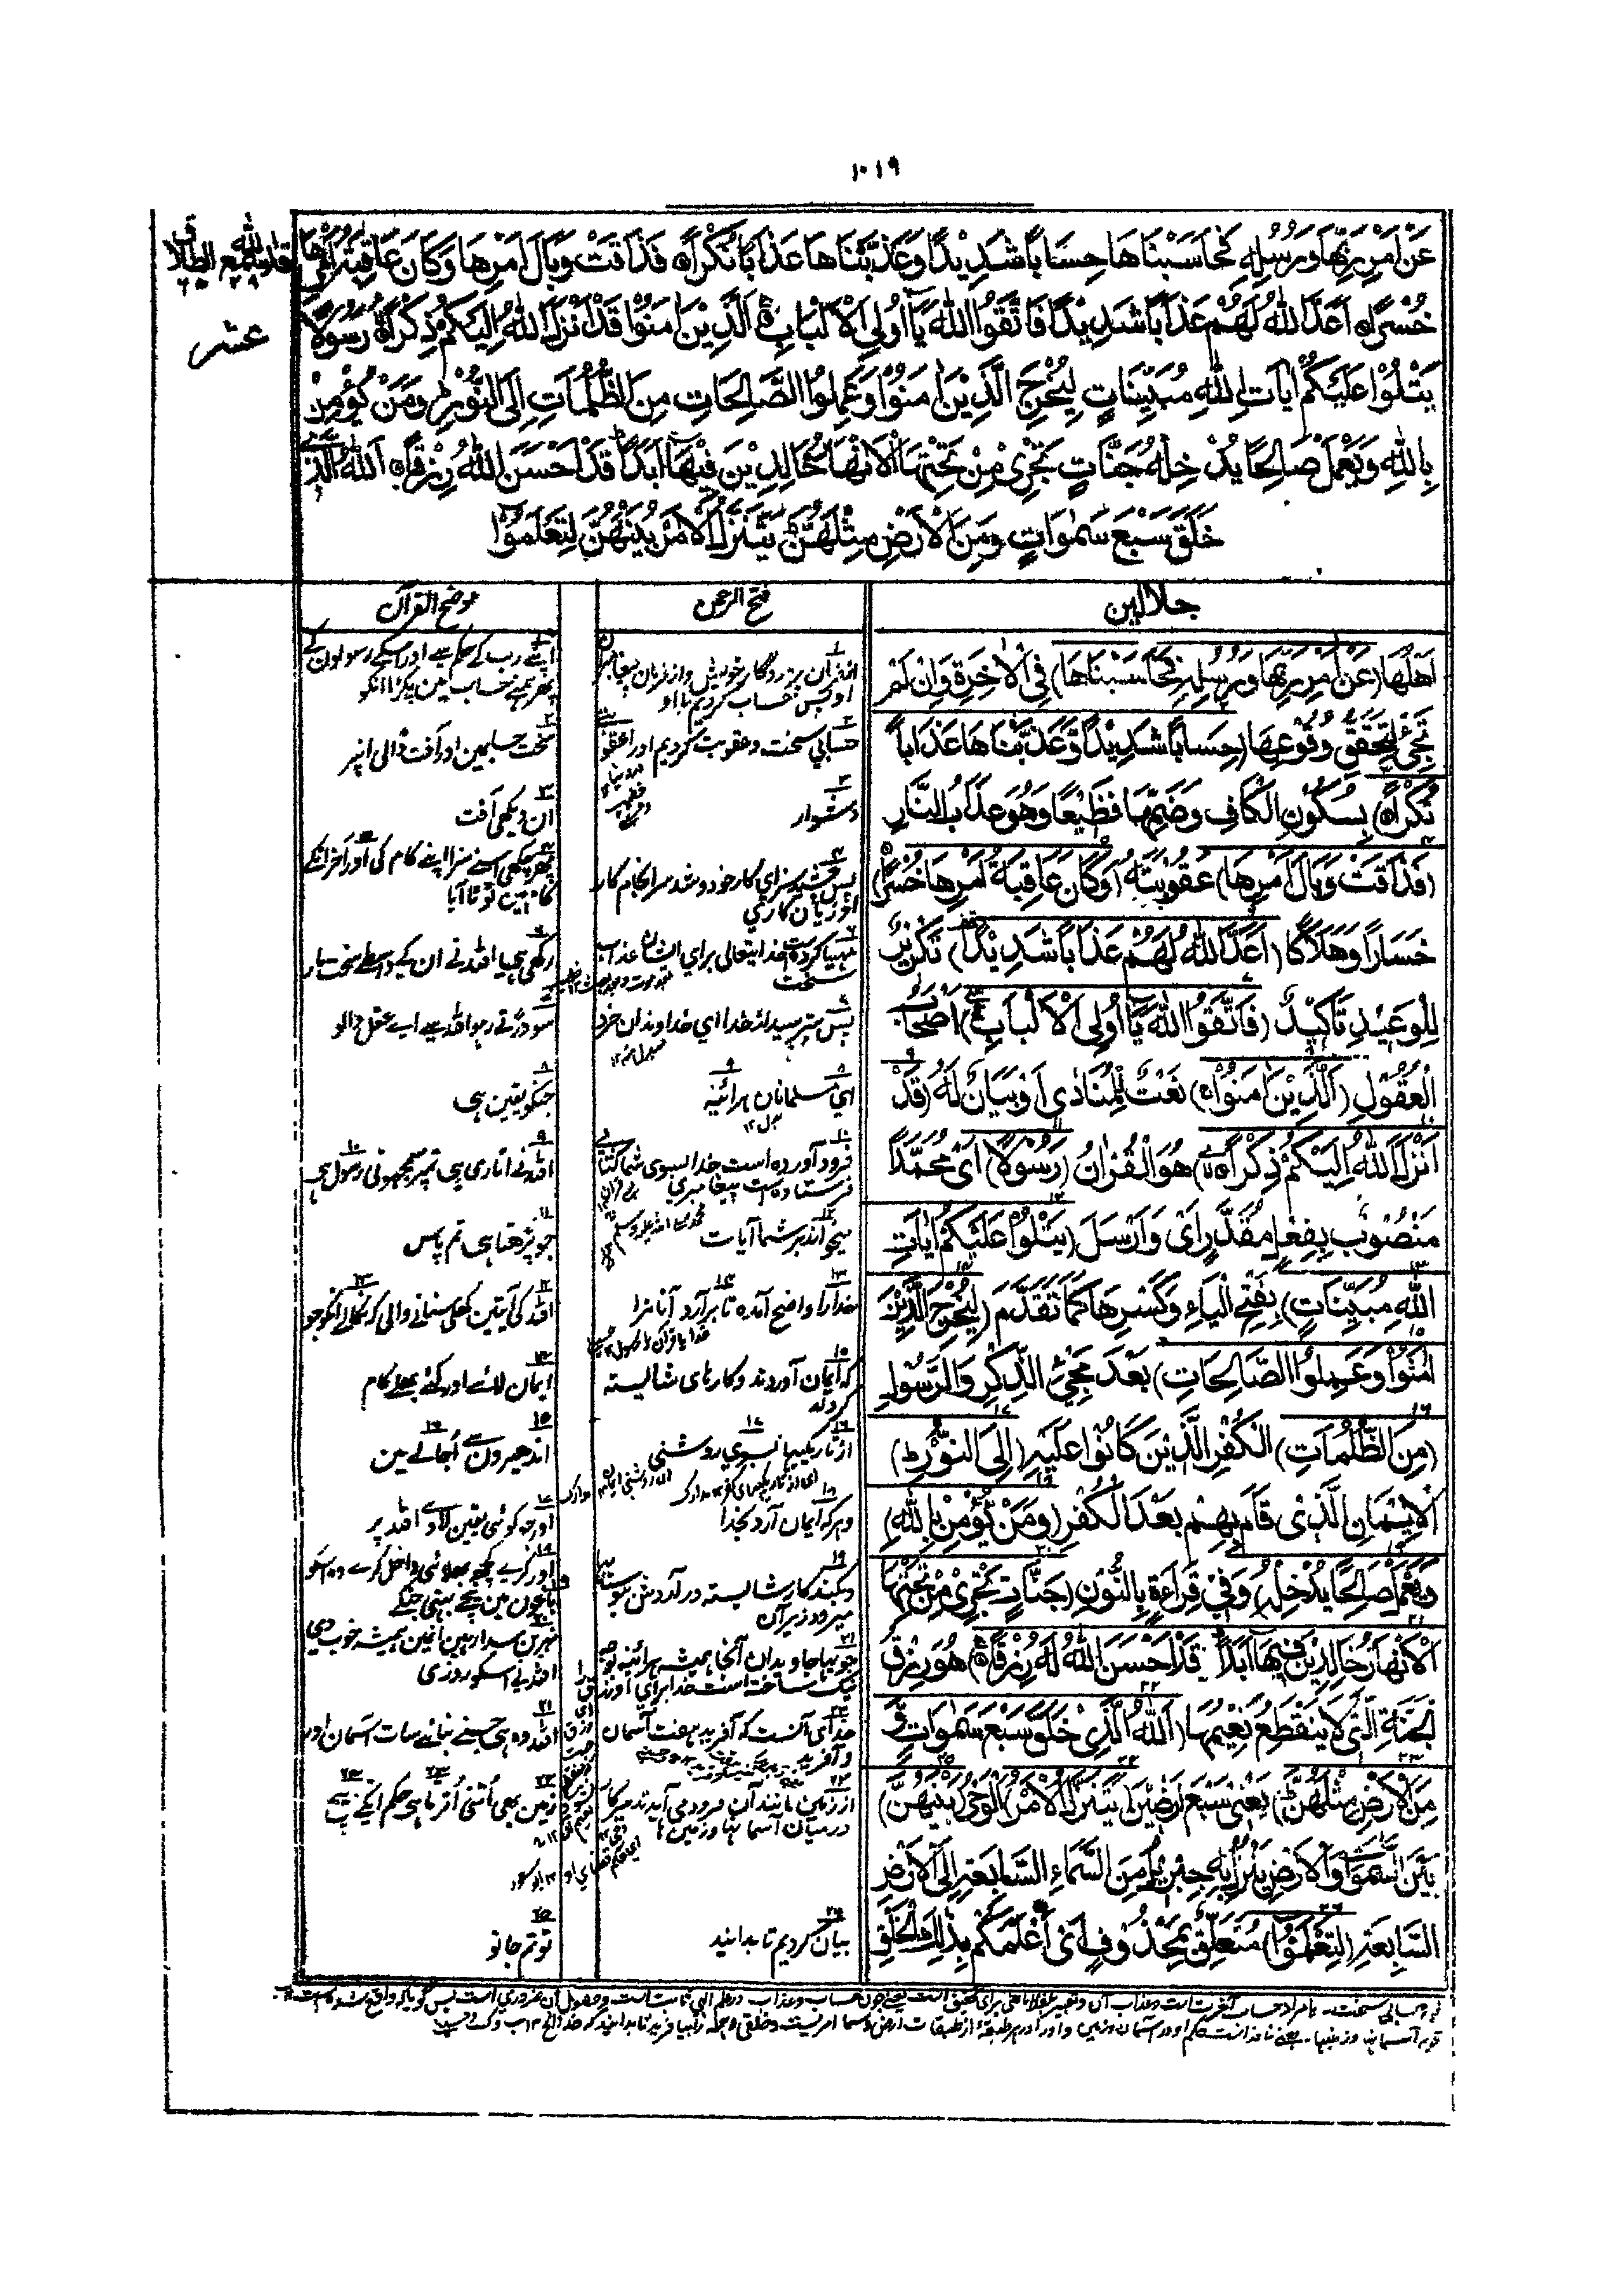 ١٠١٩
قد سمع الله
الطلاق
٢٩ ٦٥
عشر
عَنْ اَمْرِ رَبِّهَا وَرُسُلِهٖ فَحَاسَبْنَاهَا حِسَابًا شَدِيْدًا وَّعَذَّبْنَاهَا عَذَابًا نُّكْرًا ۝ فَذَاقَتْ وَبَالَ اَمْرِهَا وَكَانَ عَاقِبَةُ اَمْرِهَا
خُسْرًا ۝ اَعَدَّ اللّٰهُ لَهُمْ عَذَابًا شَدِيْدًا فَاتَّقُوا اللّٰهَ يَآ اُولِي الْاَلْبَابِ الَّذِيْنَ اٰمَنُوْا قَدْ اَنْزَلَ اللّٰهُ اِلَيْكُمْ ذِكْرًا ۝ رَسُوْلًا
يَتْلُوْا عَلَيْكُمْ اٰيَاتِ اللّٰهِ مُبَيِّنَاتٍ لِّيُخْرِجَ الَّذِيْنَ اٰمَنُوْا وَعَمِلُوا الصَّالِحَاتِ مِنَ الظُّلُمَاتِ اِلَى النُّوْرِ وَمَنْ يُّؤْمِنْ
بِاللّٰهِ وَيَعْمَلْ صَالِحًا يُدْخِلْهُ جَنَّاتٍ تَجْرِيْ مِنْ تَحْتِهَا الْاَنْهَارُ خَالِدِيْنَ فِيْهَا اَبَدًا قَدْ اَحْسَنَ اللّٰهُ لَهُ رِزْقًا ۝ اَللّٰهُ الَّذِيْ
خَلَقَ سَبْعَ سَمٰوَاتٍ وَّمِنَ الْاَرْضِ مِثْلَهُنَّ يَتَنَزَّلُ الْاَمْرُ بَيْنَهُنَّ لِتَعْلَمُوْٓا
جلالين
اَهْلُهَا (عَنْ اَمْرِ رَبِّهَا وَرُسُلِهٖ فَحَاسَبْنَاهَا) فِي الْاٰخِرَةِ وَاِنْ لَمْ
تَجِئْ لِتَحَقُّقِ وُقُوْعِهَا (حِسَابًا شَدِيْدًا وَّعَذَّبْنَاهَا عَذَابًا
نُّكْرًا) بِسُكُوْنِ الْكَافِ وَضَمِّهَا فَظِيْعًا وَهُوَ عَذَابُ النَّارِ
(فَذَاقَتْ وَبَالَ اَمْرِهَا) عُقُوْبَتَهُ (وَكَانَ عَاقِبَةُ اَمْرِهَا خُسْرًا)
خَسَارًا وَهَلَاكًا (اَعَدَّ اللّٰهُ لَهُمْ عَذَابًا شَدِيْدًا) تَكْرِيْرُ
لِلْوَعِيْدِ تَاْكِيْدٌ (فَاتَّقُوا اللّٰهَ يَآ اُولِي الْاَلْبَابِ) اَصْحَابَ
الْعُقُوْلِ (الَّذِيْنَ اٰمَنُوْا) نَعْتٌ لِلْمُنَادٰى اَوْ بَيَانٌ لَهُ (قَدْ
اَنْزَلَ اللّٰهُ اِلَيْكُمْ ذِكْرًا) هُوَ الْقُرْاٰنُ (رَسُوْلًا) اَيْ مُحَمَّدًا
مَنْصُوْبٌ بِفِعْلٍ مُقَدَّرٍ اَيْ وَاَرْسَلَ (يَتْلُوْا عَلَيْكُمْ اٰيَاتِ
اللّٰهِ مُبَيِّنَاتٍ) بِفَتْحِ الْيَاءِ وَكَسْرِهَا كَمَا تَقَدَّمَ (لِيُخْرِجَ الَّذِيْنَ
اٰمَنُوْا وَعَمِلُوا الصَّالِحَاتِ) بَعْدَ مَجِيْءِ الذِّكْرِ وَالرَّسُوْلِ
(مِنَ الظُّلُمَاتِ) الْكُفْرِ الَّذِيْنَ كَانُوْا عَلَيْهِ (اِلَى النُّوْرِ)
الْاِيْمَانِ الَّذِيْ قَامَ بِهِمْ بَعْدَ الْكُفْرِ (وَمَنْ يُّؤْمِنْ بِاللّٰهِ)
وَيَعْمَلْ صَالِحًا يُدْخِلْهُ) وَفِيْ قِرَاءَةٍ بِالنُّوْنِ (جَنَّاتٍ تَجْرِيْ مِنْ تَحْتِهَا
الْاَنْهَارُ خَالِدِيْنَ فِيْهَا اَبَدًا قَدْ اَحْسَنَ اللّٰهُ لَهُ رِزْقًا) هُوَ رِزْقُ
الْجَنَّةِ الَّتِيْ لَا يَنْقَطِعُ نَعِيْمُهَا (اَللّٰهُ الَّذِيْ خَلَقَ سَبْعَ سَمٰوَاتٍ وَّ
مِنَ الْاَرْضِ مِثْلَهُنَّ) يَعْنِيْ سَبْعَ اَرْضِيْنَ (يَتَنَزَّلُ الْاَمْرُ) الْوَحْيُ (بَيْنَهُنَّ)
بَيْنَ السَّمٰوَاتِ وَالْاَرْضِ يَنْزِلُ بِهٖ جِبْرِيْلُ مِنَ السَّمَاءِ السَّابِعَةِ اِلَى الْاَرْضِ
السَّابِعَةِ (لِتَعْلَمُوْا) مُتَعَلِّقٌ بِمَحْذُوْفٍ اَيْ اَعْلَمَكُمْ بِذٰلِكَ الْخَلْقِ
فتح الرحمن
از فرمان پروردگار خویش و از فرمان پیغامبران
او پس حساب کردیم با او
حسابی سخت و عقوبت کردیم اورا عقوبتی
دشوار
پس چشید سزای کار خود و شد سرانجام کار
او زیان کاری
مهیا کرده است خدایتعالی برای ایشان عذاب
سخت
پس بترسید از خدا ای خداوندان خرد
ای مسلمانان هرآئینه
فرود آورده است خدا بسوی شما کتابی
فرستاده است پیغامبری
میخواند بر شما آیات
خدا را واضح آمده تا برآرد آنانرا
که ایمان آوردند و کارهای شایسته
کردند
از تاریکیها بسوی روشنی
و هر که ایمان آرد بخدا
و بکند کار شایسته درآردش ببوستانها
میرود زیر آن
جویها جاویدان آنجا همیشه هرآئینه
نیک ساخته است خدا برای او رزق
خدای آنست که آفرید هفت آسمان
و آفرید
از زمین مانند آن فرود می آید تدبیر کار
درمیان آسمانها و زمین ها
بیان کردیم تا بدانید
موضح القرآن
اپنے رب کے حکم سے اور اسکے رسولون کے
پھر ہمنے حساب مین پکڑا انکو
سخت حساب مین اور آفت ڈالی انپر
ان دیکھی آفت
پھر چکھی اسنے سزا اپنے کام کی اور آخر انکے
کام مین ٹوٹا آیا
رکھی ہی اللہ نے ان کے واسطے سخت مار
سو ڈرتے رہو اللہ سے اے عقل والو
جنکو یقین ہی
اللہ نے اتاری ہی تمپر سمجھوتی رسول ہی
جو پڑھتا ہی تم پاس
اللہ کی آیتین کھلی سنانے والی کہ نکالے انکو جو
ایمان لائے اور کئے بھلے کام
اندھیرون سے اُجالے مین
اور جو کوئی یقین لاوے اللہ پر
اور کرے کچھ بھلائی داخل کرے وہ اسکو
باغون مین نیچے بہتی جنکے
نہرین سدا رہین انمین ہمیشہ خوب دی
اللہ نے اسکو روزی
اللہ وہ ہی جسنے بنائے سات آسمان اور
زمین بھی اُتنی اُترتا ہی حکم انکے بیچ
تو تم جانو